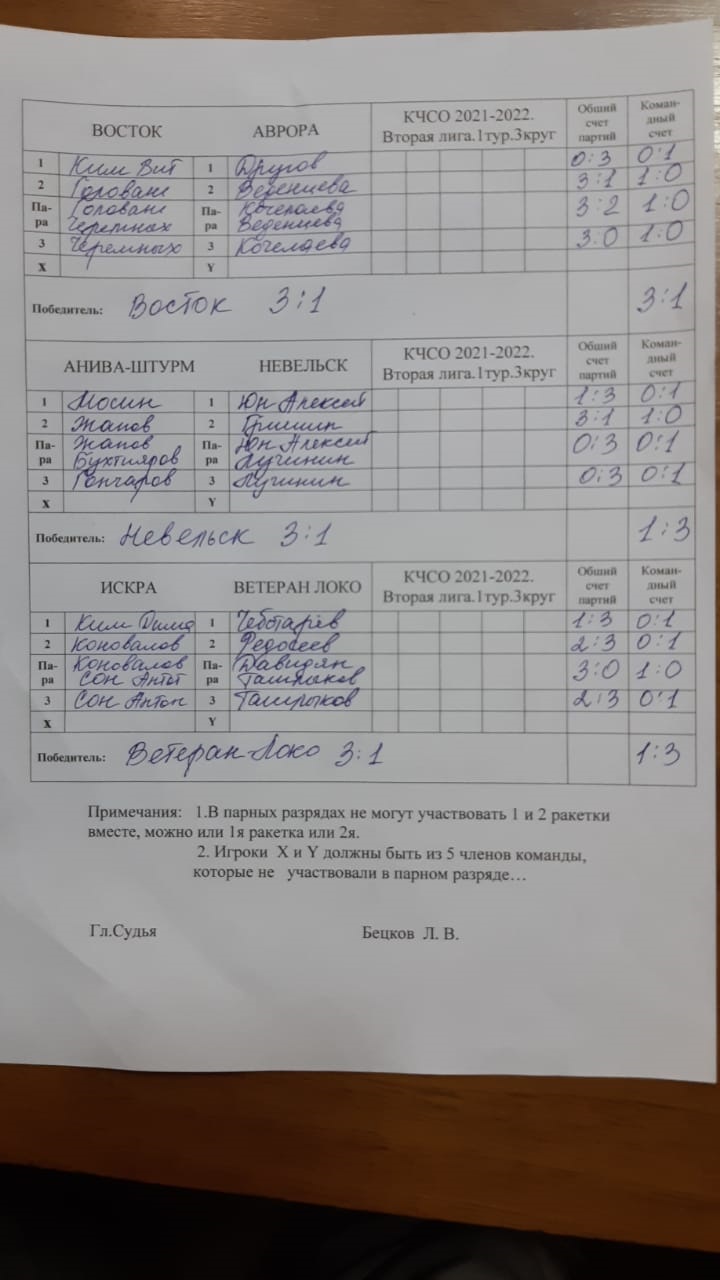 ВОСТОК АВРОРА КЧСО 2021-2022. Вторая лига.1тур.3круг Общий счет партий Коман-дный счет
1 Ким Вит 1 Другов 0:3 0:1
2 Головань 2 Веденеева 3:1 1:0
Па-ра Головань Па-ра Кочелаева 3:2 1:0
Черемных Веденеева
3 Черемных 3 Кочелаева 3:0 1:0
X Y
Победитель: Восток 3:1 3:1
АНИВА-ШТУРМ НЕВЕЛЬСК КЧСО 2021-2022. Вторая лига.1тур.3круг Общий счет партий Коман-дный счет
1 Мосин 1 Юн Алексей 1:3 0:1
2 Жапов 2 Гришин 3:1 1:0
Па-ра Жапов Па-ра Юн Алексей 0:3 0:1
Бухтияров Лучинин
3 Гончаров 3 Лучинин 0:3 0:1
X Y
Победитель: Невельск 3:1 1:3
ИСКРА ВЕТЕРАН ЛОКО КЧСО 2021-2022. Вторая лига.1тур.3круг Общий счет партий Коман-дный счет
1 Ким Дима 1 Чеботарёв 1:3 0:1
2 Коновалов 2 Федосеев 2:3 0:1
Па-ра Коновалов Па-ра Давидян 3:0 1:0
Сон Антон Ташлыков
3 Сон Антон 3 Ташлыков 2:3 0:1
X Y
Победитель: Ветеран Локо 3:1 1:3
Примечания: 1.В парных разрядах не могут участвовать 1 и 2 ракетки
вместе, можно или 1я ракетка или 2я.
2. Игроки X и Y должны быть из 5 членов команды,
которые не участвовали в парном разряде…
Гл.Судья Бецков Л. В.